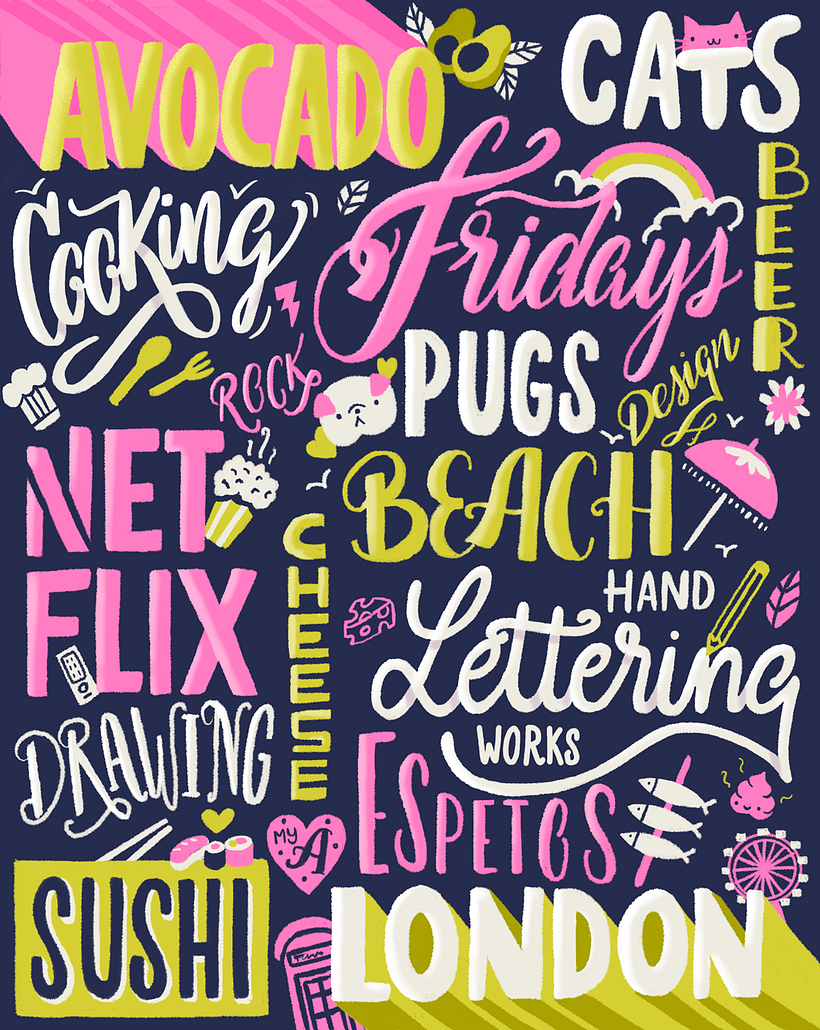 AVOCADO
CATS
Cooking
Fridays
BEER
ROCK
PUGS
Design
NET
FLIX
BEACH
CHEESE
HAND
Lettering
WORKS
DRAWING
ESPETOS
MY A
SUSHI
LONDON